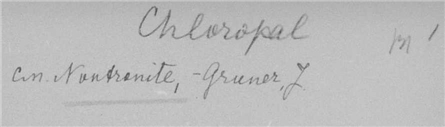 Chloropal m'
c.n. Nontronite, - Gruner, J